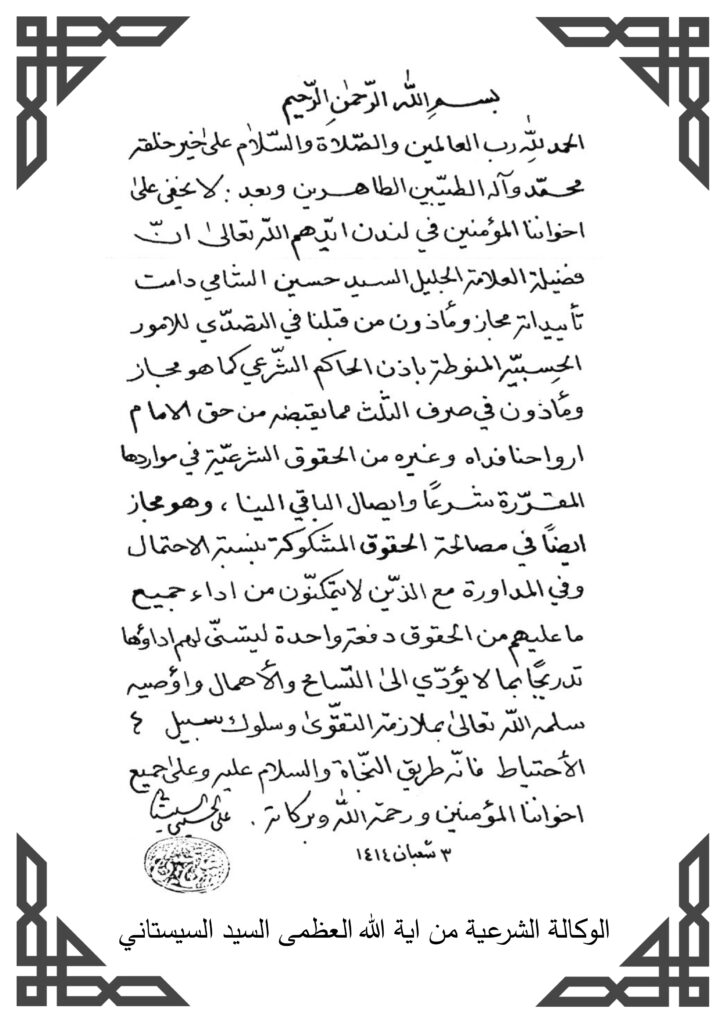 بسم الله الرحمن الرحيم
الحمد لله رب العالمين والصّلاة والسّلام على خير خلقه
محمّد وآله الطيّبين الطاهرين وبعد : لا يخفى على
اخواننا المؤمنين في لندن ايّدهم الله تعالى انّ
فضيلة العلامة الجليل السيد حسين الشامي دامت
تأييداته مجاز ومأذون من قبلنا في التصدّي للامور
الحسبيّة المنوطة باذن الحاكم الشّرعي كما هو مجاز
ومأذون في صرف الثّلث مما يقبضه من حق الامام
ارواحنا فداه وغيره من الحقوق الشرعيّة في مواردها
المقرّرة شرعًا وايصال الباقي الينا ، وهو مجاز
ايضًا في مصالحة الحقوق المشكوكة بنسبة الاحتمال
وفي المداورة مع الذين لا يتمكنّون من اداء جميع
ما عليهم من الحقوق دفعة واحدة ليتسنّى لهم اداؤها
تدريجًا بما لا يؤدّي الى التّسامح والأهمال واؤصيه
سلمه الله تعالى بملازمة التقوّى وسلوك سبيل
الأحتياط فانّه طريق النجّاة والسلام عليه وعلى جميع
اخواننا المؤمنين ورحمة الله وبركاته . علي الحسيني السيستاني
٣ شعبان ١٤١٤
الوكالة الشرعية من اية الله العظمى السيد السيستاني